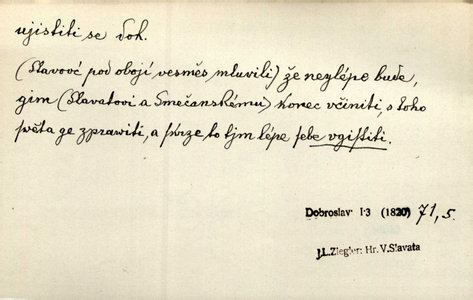 ujistiti se dok.
(Stavové pod obojí vesměs mluvili) že neylépe bude,
gim (Slavatovi a Smečanskému) konec včiniti, s toho
swěta ge zprawiti, a skrze to tjm lépe sebe vgistiti.
Dobroslav I·3 (1820) 71, 5.
J.L.Ziegler: Hr.V.Slavata